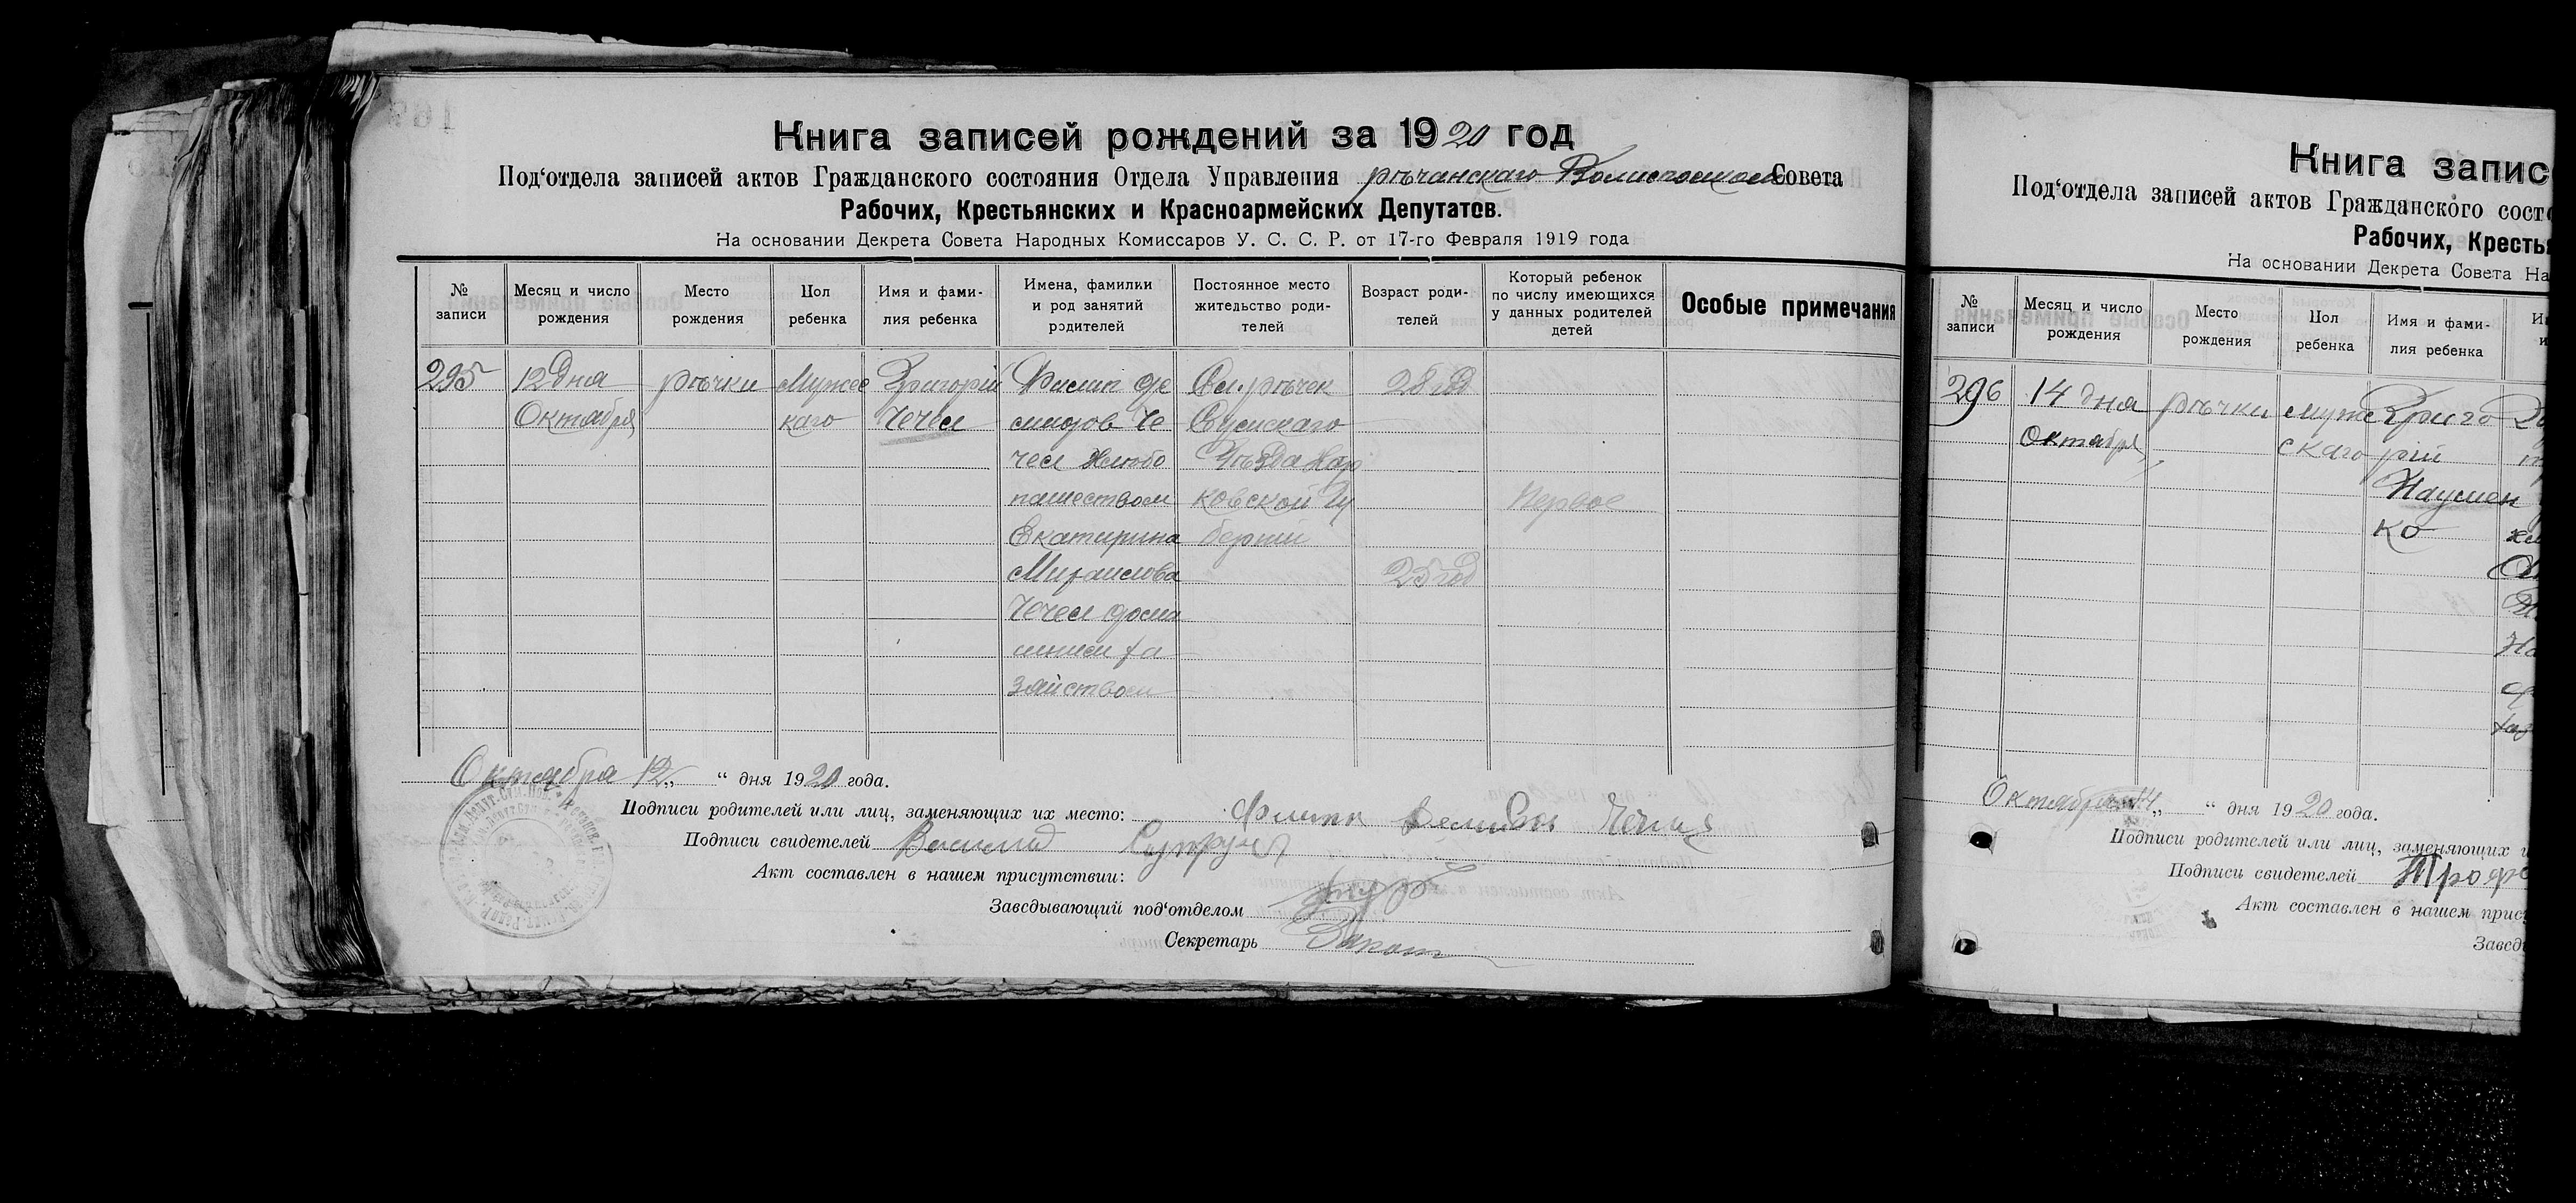 Книга записей рождений за 1920 год
Под‘отдела записей актов Гражданского состояния Отдела Управления речанскаго Совета
Рабочих, Крестьянских и Красноармейских Депутатов.
На основании Декрета Совета Народных Комиссаров У. С. С. Р. от 17-го Февраля 1919 года
№ записи
Месяц и число рождения
Место рождения
Пол ребенка
Имя и фамилия ребенка
Имена, фамилии и род занятий родителей
Постоянное место жительство родителей
Возраст родителей
Который ребенок по числу имеющихся у данных родителей детей
Особые примечания
295 12 дня речки Мужес Григорій Филип Де Сел. речек 28 год
Октября каго Чечел Че Сумскаго
чел хлебо Уезда Хар
пашеством ковской Гу Первое
Екатирина берній
Михаилова 25 год
Чечел дома
шним ха
зяйством
Октября 12 „ “ дня 1920 года.
Подписи родителей или лиц, заменяющих их место:
Подписи свидетелей
Акт составлен в нашем присутствии:
Заведывающий под‘отделом
Секретарь
Книга запис
Под‘отдела записей актов Гражданского сост
Рабочих, Кресть
На основании Декрета Совета На
№ записи
Месяц и число рождения
Место рождения
Пол ребенка
Имя и фамилия ребенка
296 14 дня речки мужс Григо
Октября скаго рій
Наумен
ко
Октября 14 „ “ дня 1920 года.
Подписи родителей или лиц, заменяющих и
Подписи свидетелей Троф
Акт составлен в нашем прису
Завед